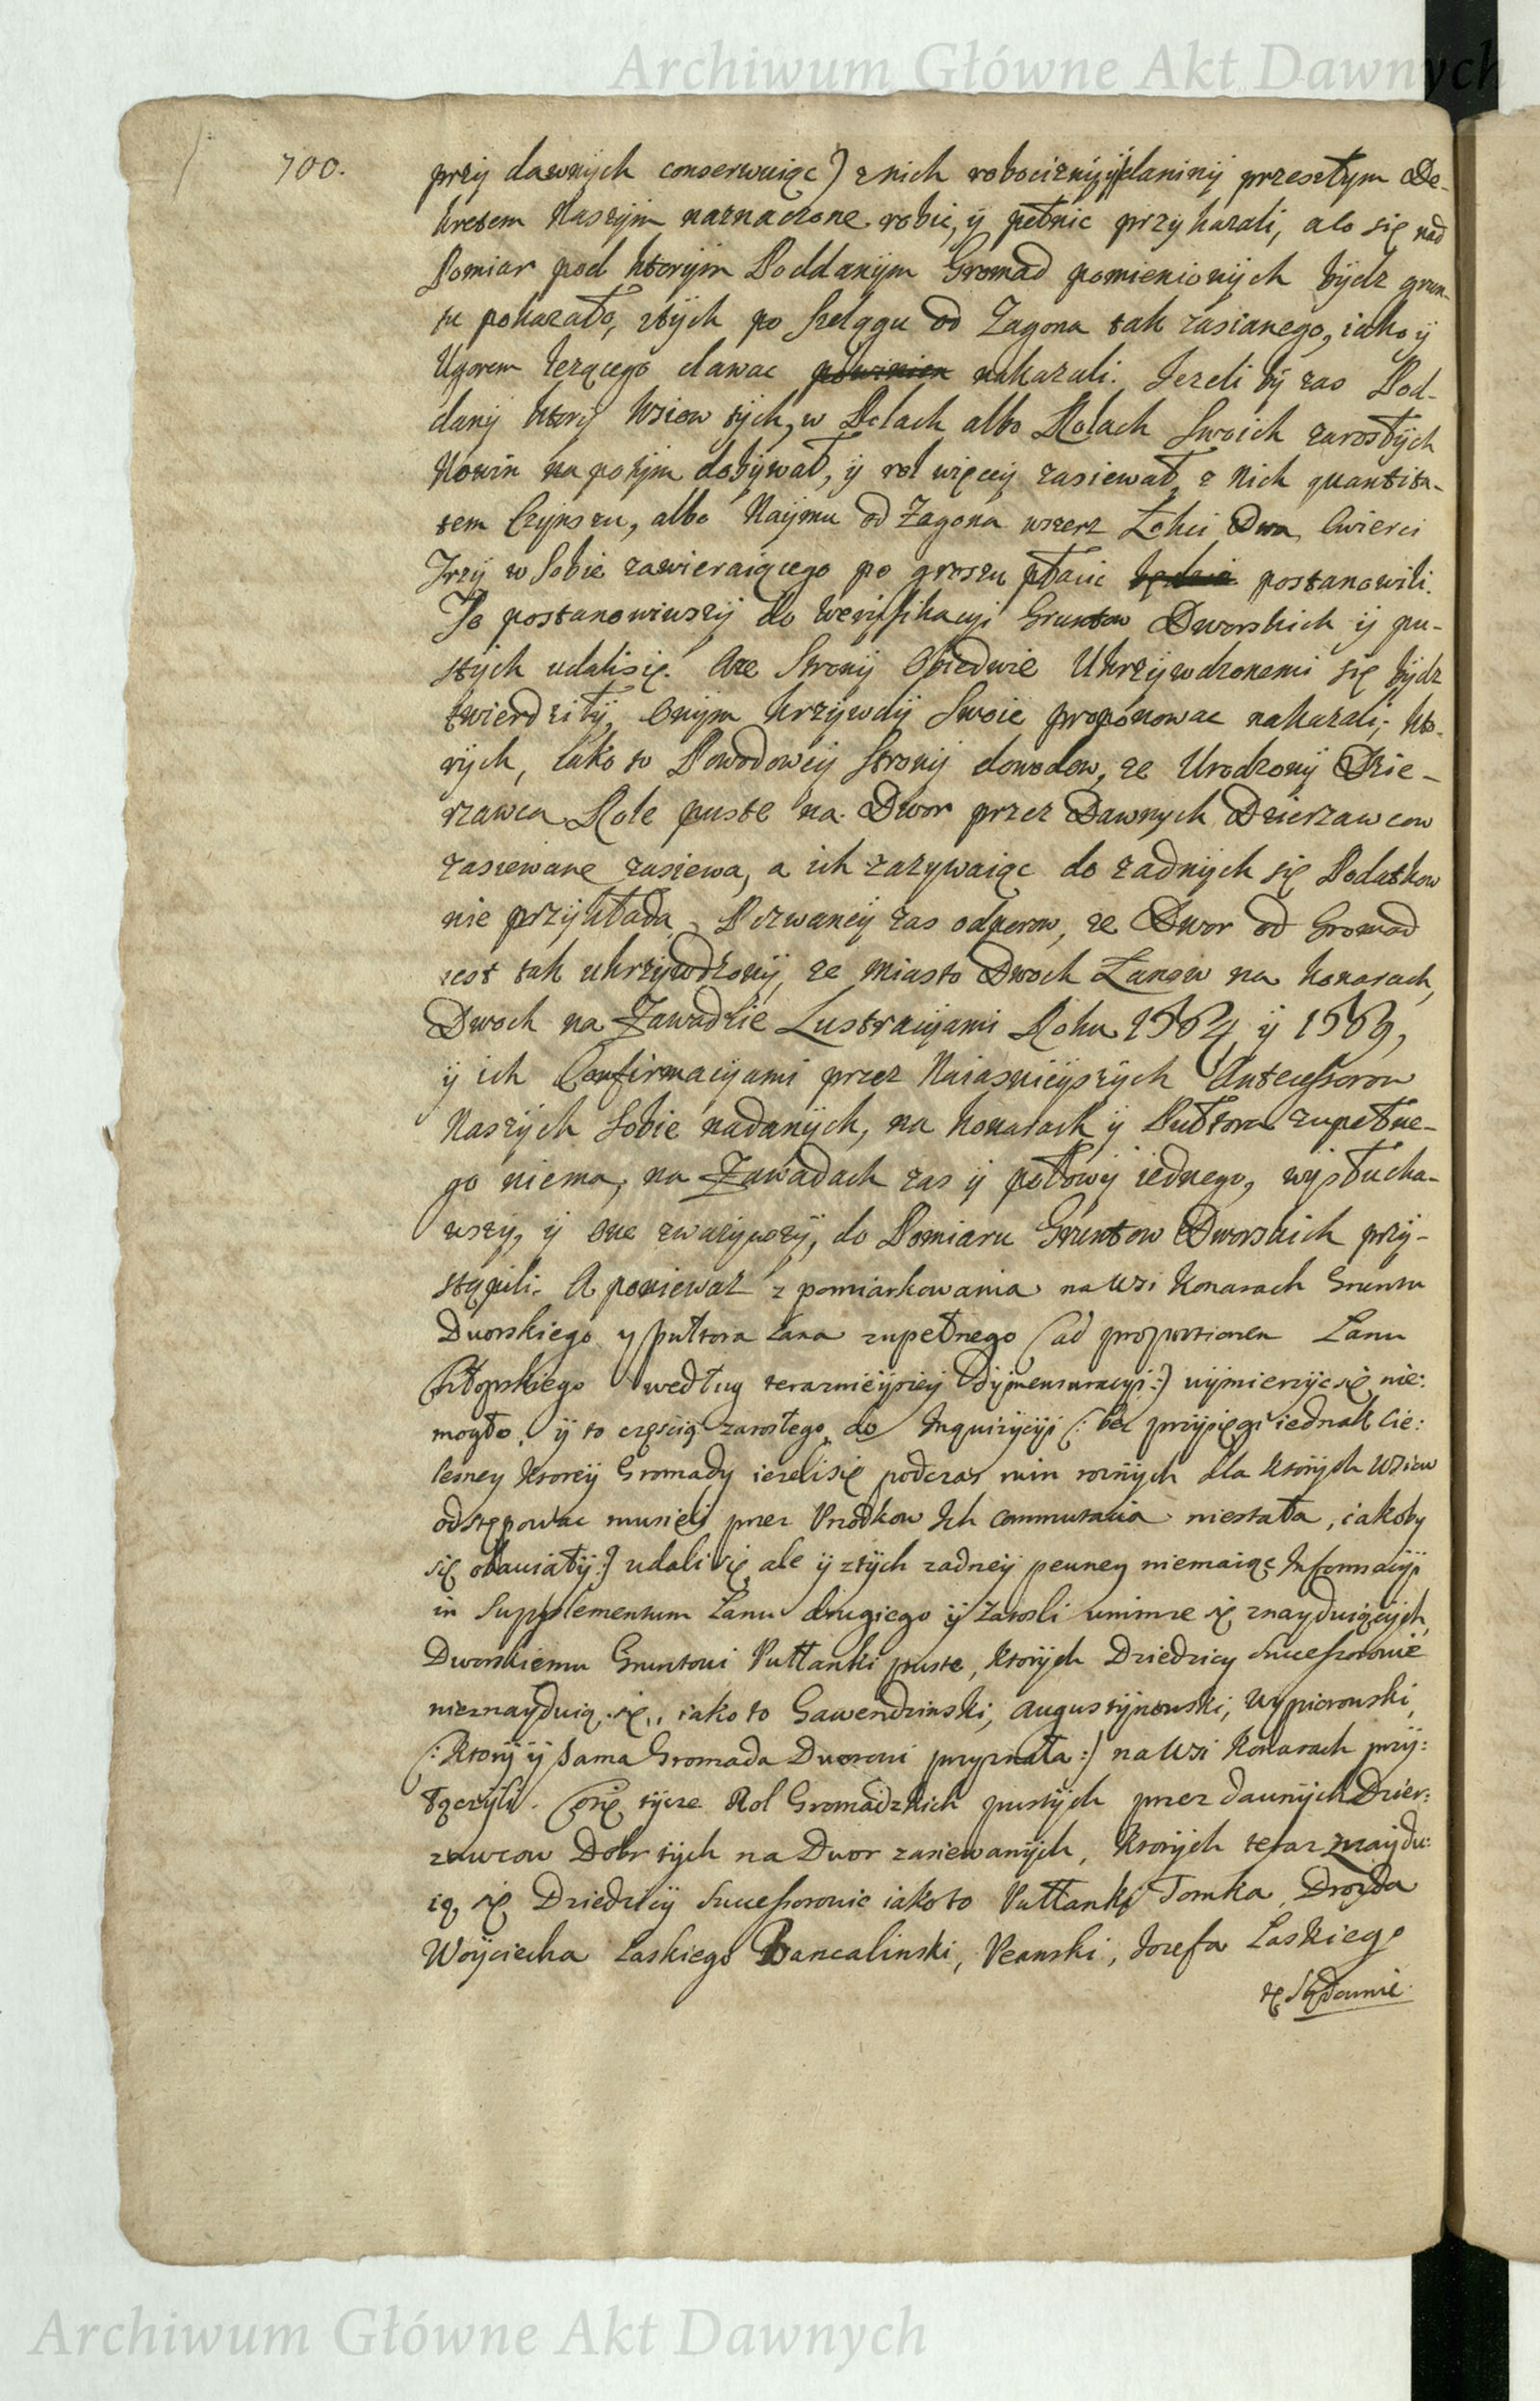 Archiwum Główne Akt Dawnych
700.
przy dawnych conserwuiąc) z nich robocizny y daniny przeszłym De-
kretem Naszym naznaczone robic, y pełnic przykazali, a co się nad
Pomiar pod ktorym Poddanym Gromad pomienionych bydz grun-
tu pokazało, z tych po szelągu od Zagona tak zasianego, iako y
Ugorem lezącego dawac powinien nakazali. Jezeli by zas Pod-
dany ktory Wsiow tych, w Polach albo Rolach Swoich zarosłych
Nowin na potym dobywał, y rol więcey zasiewał, z nich quantita-
tem Czynszu, albo Naymu od Zagona wszerz Łokci Dwa, cwierci
Trzy w Sobie zawieraiącego po groszu płacic będzie postanowili.
To postanowiwszy do weryfikacyi Gruntow Dworskich y pu-
stych udali się. A ze Strony Obiedwie Ukrzywdzonemi się bydz
twierdziły, Onym krzywdy Swoie proponowac nakazali; kto-
rych, iako to Powodowey Strony dowodow, ze Urodzony Dzie-
rzawca Role puste na Dwor przez Dawnych Dzierzawcow
zasiewane zasiewa, a ich zazywaiąc do zadnych się Podatkow
nie przykłada, Pozwaney zas odporow, ze Dwor od Gromad
iest tak ukrzywdzony, ze miasto Dwoch Łanow na Konarach,
Dwoch na Zawadzie Lustracyami Roku 1564 y 1569,
y ich Confirmacyami przez Naiasnieyszych Antecessorow
Naszych Sobie nadanych, na Konarach y Pułtora zupełne-
go niema, na Zawadach zas y połowy iednego, wysłucha-
wszy, y one zwazywszy, do Pomiaru Gruntow Dworskich przy-
stąpili. A poniewaz z pomiarkowania na Wsi Konarach Gruntu
Dworskiego y pułtora Łana zupełnego (ad proportionem Łanu
Chłopskiego według teraznieyszey dymensuracyi:) wymierzyc się nie:
mogło, y to częscią zarosłego, do Inquizycyi (: bez przysięgi iednak Cie:
lesney ktorey Gromady iezeli się podczas min roznych dla ktorych Wsiow
odstępowac musieli przez Przodkow Ich commutacia niestała, iakoby
się obawiały:) udali się, ale y z tych zadney pewney niemaiąc Informacyi
in Supplementum Łanu drugiego y Zarosli w nimze się znayduiących,
Dworskiemu Gruntowi Pułłanki puste, ktorych Dziedzicy Successorowie
nieznayduią się, iako to Gawendzinski, Augustynowski, Wypiorowski,
(: ktory y Sama Gromada Dworowi przyznała :) na Wsi Konarach przy:
łączyli. Co się tycze Rol Gromadzkich pustych przez dawnych Dzier:
zawcow Dobr tych na Dwor zasiewanych, ktorych teraz znaydu:
ią się Dziedzicy Successorowie iako to Pułłanki Tomka Drozda
Woyciecha Laskiego Bancalinski, Peanski, Jozefa Laskiego
Archiwum Główne Akt Dawnych